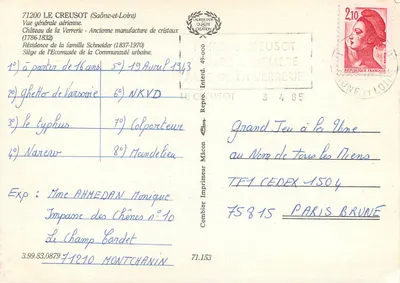 71200 LE CREUSOT (Saône-et-Loire)
Vue générale aérienne.
Château de la Verrerie - Ancienne manufacture de cristaux
(1786-1832)
Résidence de la famille Schneider (1837-1970)
Siège de l'Economuseé de la Communauté urbaine.
1°) à partir de 16 ans
5°) 19 Avril 1943
2°) ghetto de Varsovie
6°) NKVD
3°) le typhus
7°) Colporteur
4°) Narew
8°) Mandelieu
Exp : Mme AHMEDAN Monique
Impasse des Chênes n°10
Le Champ Cordet
71210 MONTCHANIN
3.99.83.0879
71.153
Combier Imprimeur Mâcon
Repro. Interd. 49.000
2,10
LE CREUSOT
3 4 85
Grand Jeu à la Une
au Nom de tous les Miens
TF1 CEDEX 1504
75815 PARIS BRUNE